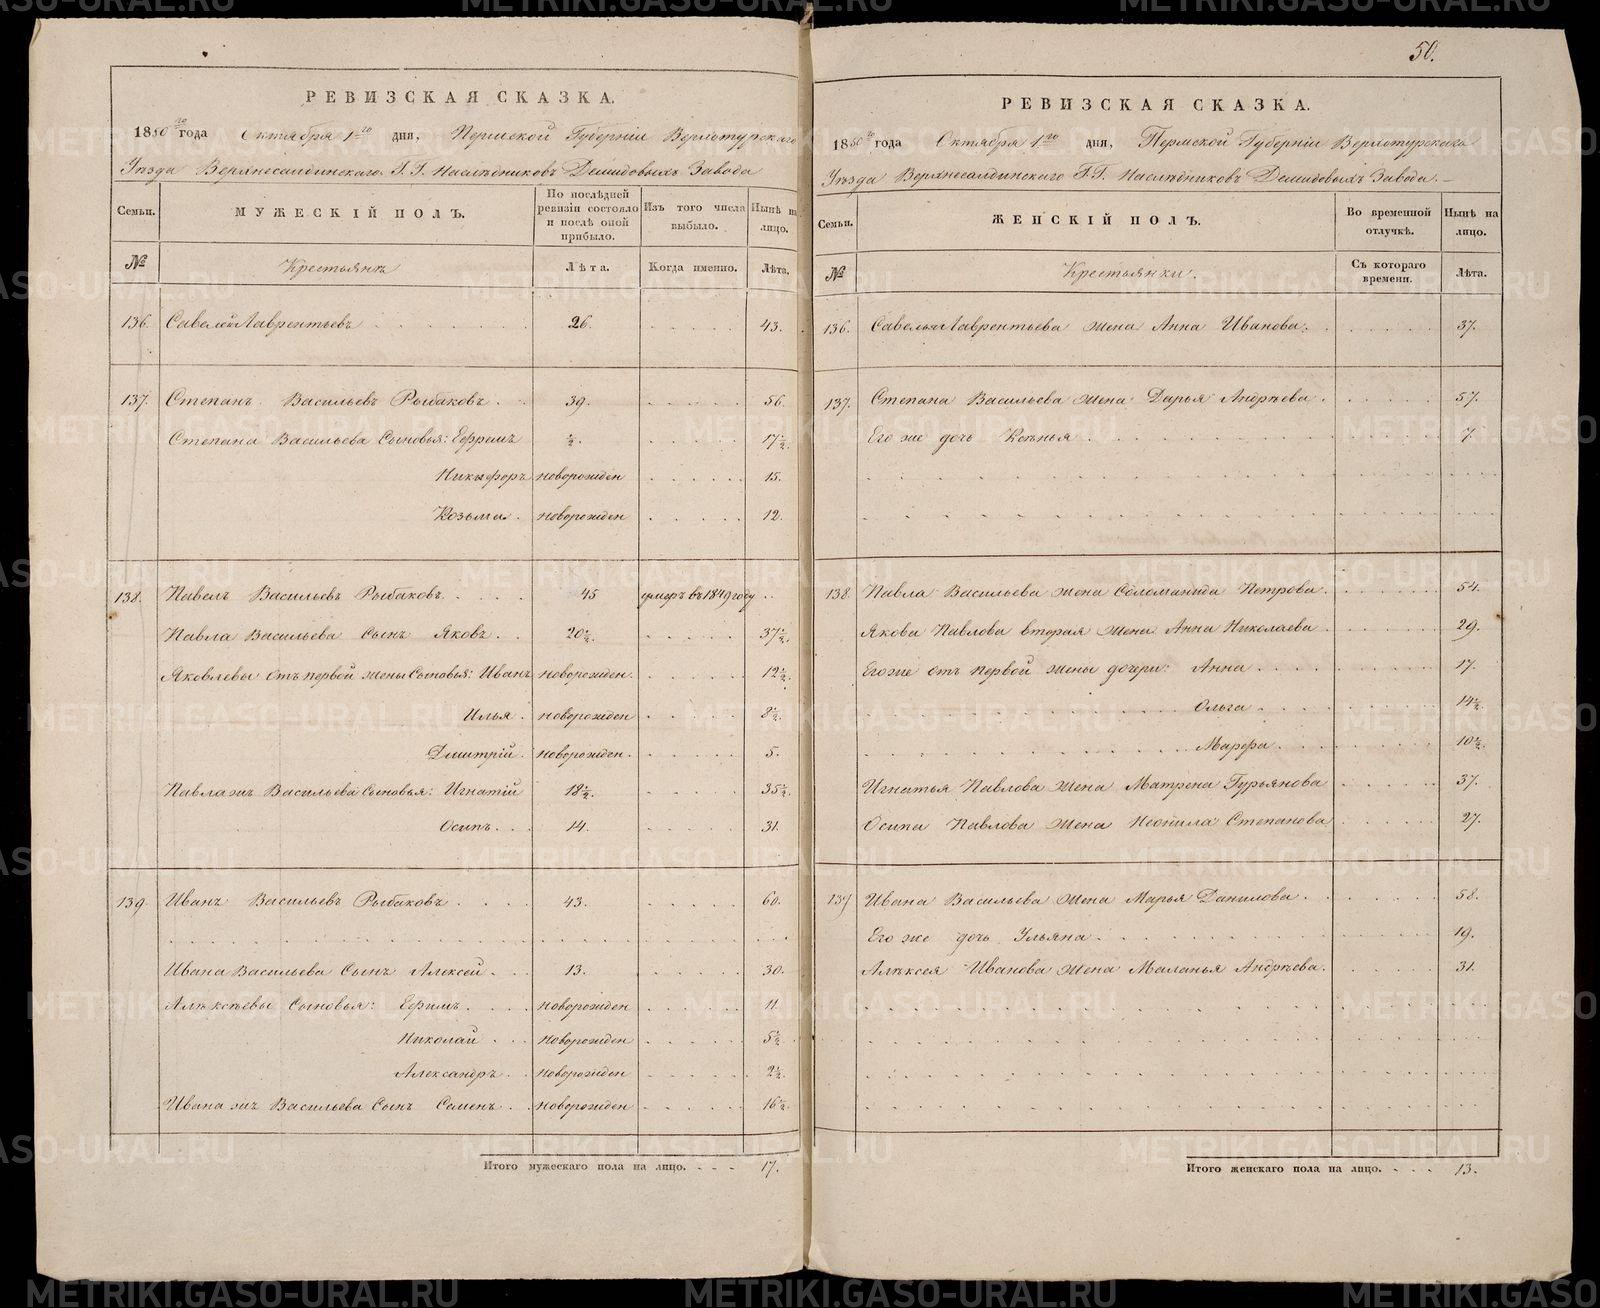 РЕВИЗСКАЯ СКАЗКА.
1850го года Октября 1го дня, Пермской Губерніи Верхотурскаго
Уѣзда Верхнесалдинскаго Г.Г. Наслѣдниковъ Демидовыхъ Завода
Семьи. МУЖЕСКІЙ ПОЛЪ. По послѣдней ревизіи состояло и послѣ оной прибыло. Изъ того числа выбыло. Нынѣ на лицо.
№ Крестьянъ Лѣта. Когда именно. Лѣта.
136. Савелій Лаврентьевъ 26. 43.
137. Степанъ Васильевъ Рыбаковъ. 39. 56.
Степана Васильева Сыновья: Ефремъ ½. 17½.
Никифоръ новорожден 15.
Козьма. новорожден 12.
138. Павелъ Васильевъ Рыбаковъ. 45 умеръ въ 1849 году
Павла Васильева Сынъ Яковъ. 20½. 37½.
Яковлевы отъ первой жены Сыновья: Иванъ новорожден. 12½.
Илья. новорожден 8½.
Дмитрій. новорожден. 5.
Павла жъ Васильева Сыновья: Игнатій 18½. 35½.
Осипъ. 14. 31.
139. Иванъ Васильевъ Рыбаковъ. 43. 60.
Ивана Васильева Сынъ Алексей. 13. 30.
Алексѣевы Сыновья: Ефимъ. новорожден 11.
Николай новорожден 5½.
Александръ. новорожден 2½.
Ивана жъ Васильева Сынъ Семенъ. новорожден 16½.
Итого мужескаго пола на лицо. 17.
50.
РЕВИЗСКАЯ СКАЗКА.
1850го года Октября 1го дня, Пермской Губерніи Верхотурскаго
Уѣзда Верхнесалдинскаго Г.Г. Наслѣдниковъ Демидовыхъ Завода.
Семьи. ЖЕНСКІЙ ПОЛЪ. Во временной отлучкѣ. Нынѣ на лицо.
№ Крестьянки. Съ котораго времени. Лѣта.
136. Савелья Лаврентьева жена Анна Иванова. 37.
137. Степана Васильева жена Дарья Андрѣева. 57.
Его же дочь Ксѣнья 7.
138. Павла Васильева жена Соломанида Петрова. 54.
Якова Павлова вторая жена Анна Николаева 29.
Его же отъ первой жены дочери: Анна 17.
Ольга 14½.
Марфа. 10½.
Игнатья Павлова жена Матрена Гурьянова 37.
Осипа Павлова жена Неонила Степанова 27.
139 Ивана Васильева жена Марья Данилова. 58.
Его же дочь Ульяна. 19.
Алѣксея Иванова жена Маланья Андрѣева. 31.
Итого женскаго пола на лицо. 13.
METRIKI.GASO-URAL.RU